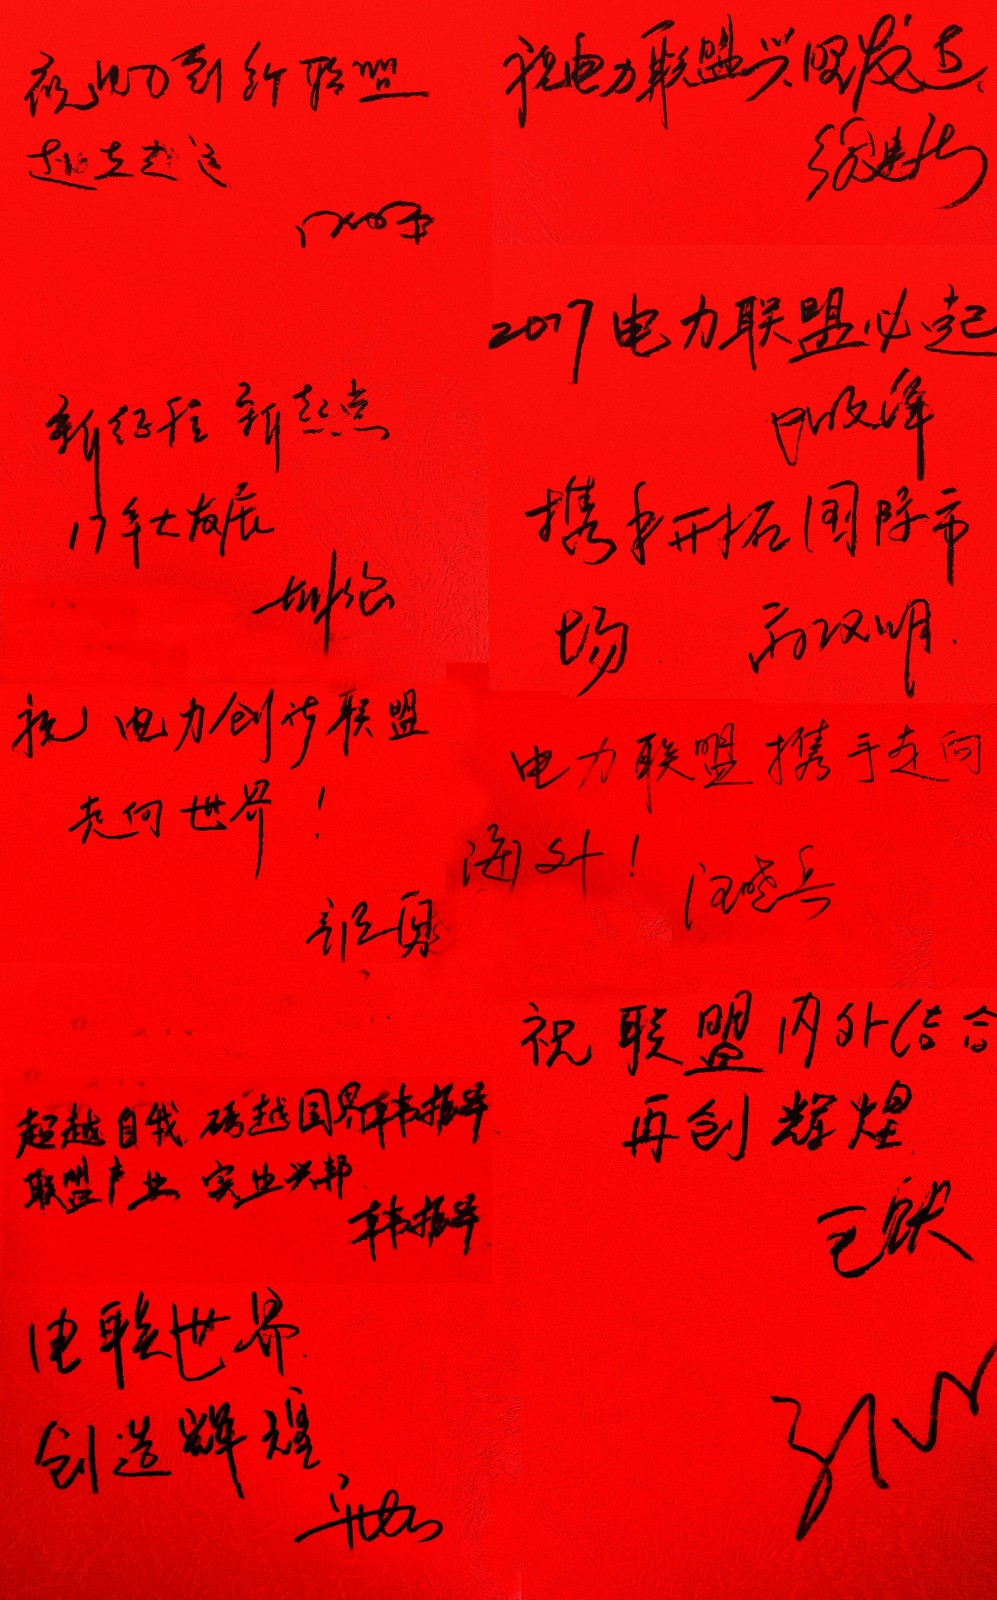 祝电力创新联盟
越走越远
新征程 新起点
17年大发展
祝 电力创新联盟
走向世界！
超越自我 跨越国界 韩振华
联盟产业 实业兴邦
韩振华
电联世界
创造辉煌
祝电力联盟兴旺发达
2017电力联盟必起
携手开拓国际市
场
电力联盟携手走向
海外！ 汪晓兵
祝联盟内外结合
再创辉煌